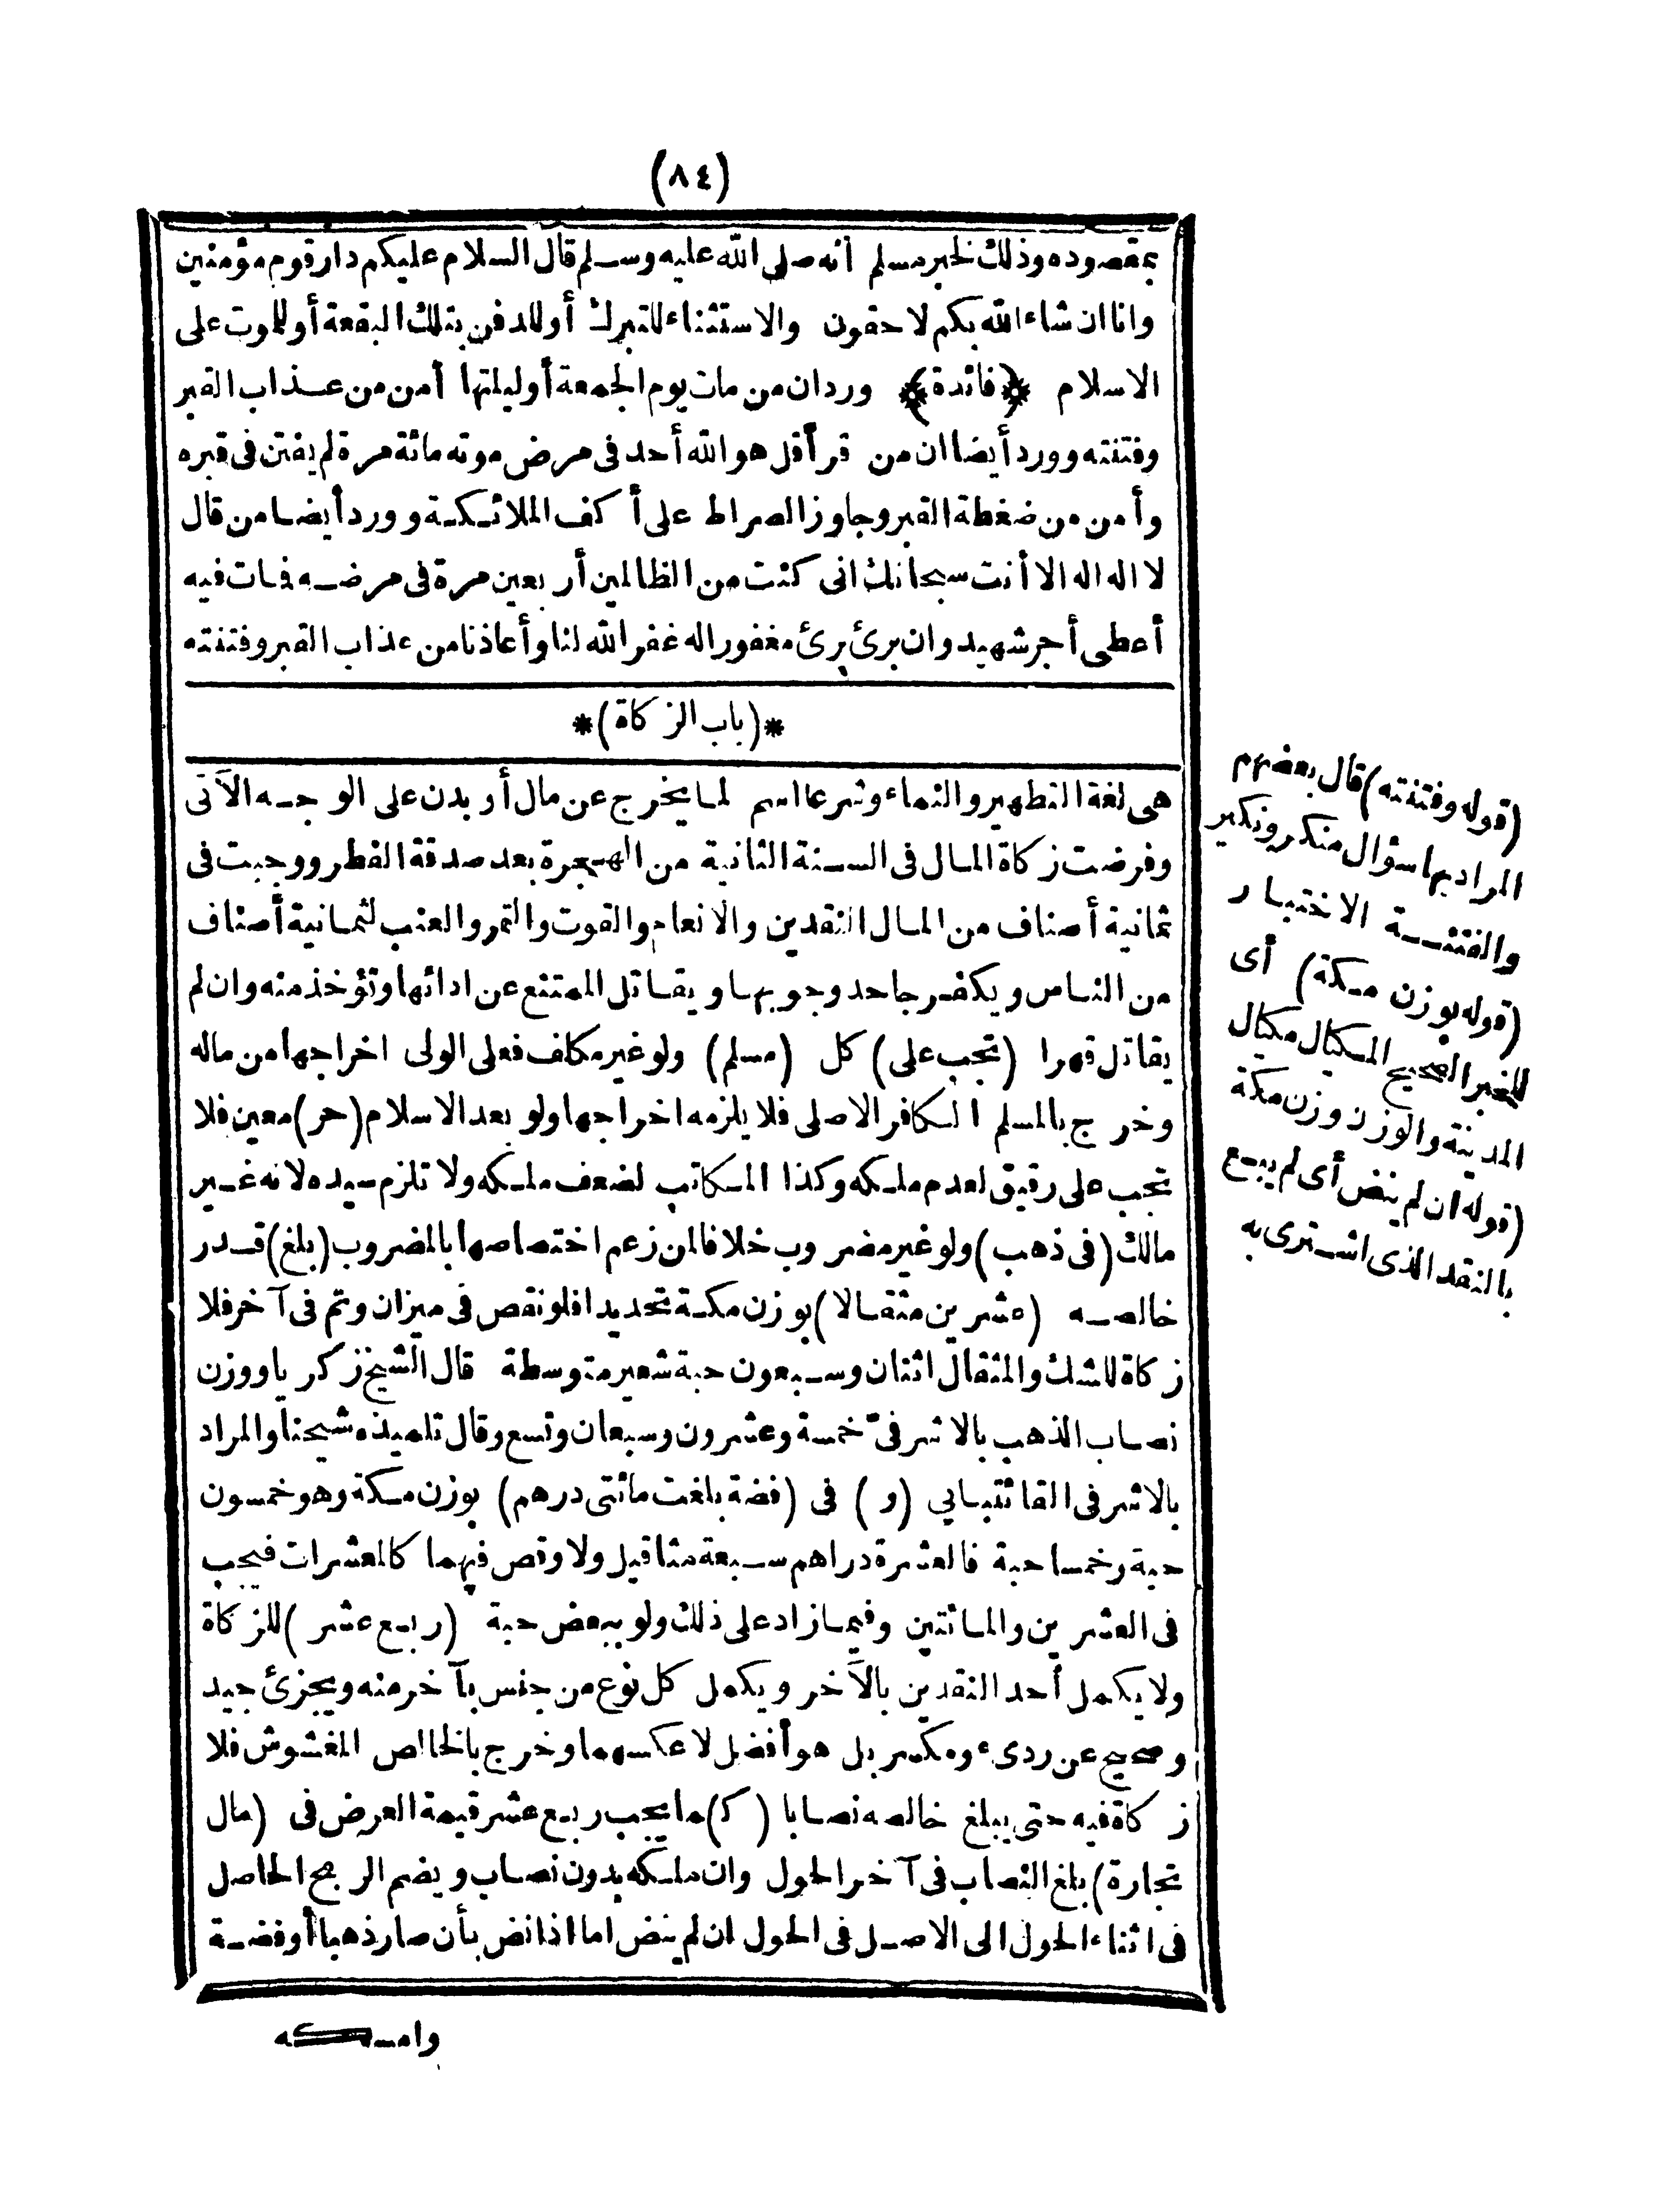 (٨٤)
بمقصوده وذلك لخبر مسلم أنه صلى الله عليه وسلم قال السلام عليكم دار قوم مؤمنين
وانا ان شاء الله بكم لاحقون والاستثناء للتبرك أو للدفن بتلك البقعة أو للموت على
الاسلام ﴿فائدة﴾ ورد ان من مات يوم الجمعة أو ليلتها أمن من عذاب القبر
وفتنته وورد أيضا ان من قرأ قل هو الله أحد فى مرض موته مائة مرة لم يفتن فى قبره
وأمن من ضغطة القبر وجاوز الصراط على أكف الملائكة وورد أيضا من قال
لا اله الا أنت سبحانك انى كنت من الظالمين أربعين مرة فى مرضه فمات فيه
أعطى أجر شهيد وان برئ برئ مغفورا له غفر الله لنا وأعاذنا من عذاب القبر وفتنته
*(باب الزكاة)*
هى لغة التطهير والنماء وشرعا اسم لما يخرج عن مال أو بدن على الوجه الآتى
وفرضت زكاة المال فى السنة الثانية من الهجرة بعد صدقة الفطر ووجبت فى
ثمانية أصناف من المال النقدين والانعام والقوت والتمر والعنب لثمانية أصناف
من الناس ويكفر جاحد وجوبها ويقاتل الممتنع عن ادائها وتؤخذ منه وان لم
يقاتل قهرا (تجب على) كل (مسلم) ولو غير مكلف فعلى الولى اخراجها من ماله
وخرج بالمسلم الكافر الاصلى فلا يلزمه اخراجها ولو بعد الاسلام (حر) معين فلا
تجب على رقيق لعدم ملكه وكذا المكاتب لضعف ملكه ولا تلزم سيده لانه غير
مالك (فى ذهب) ولو غير مضروب خلافا لمن زعم اختصاصها بالمضروب (بلغ) قدر
خالصه (عشرين مثقالا) بوزن مكة تحديدا فلو نقص فى ميزان وتم فى آخر فلا
زكاة للشك والمثقال اثنان وسبعون حبة شعير متوسطة قال الشيخ زكريا ووزن
نصاب الذهب بالاشرفىّ خمسة وعشرون وسبعان وتسع وقال تلميذه شيخنا والمراد
بالاشرفى القائتبايي (و) فى (فضة بلغت مائتى درهم) بوزن مكة وهو خمسون
حبة وخمسا حبة فالعشرة دراهم سبعة مثاقيل ولا وقص فيهما كالمعشرات فيجب
فى العشرين والمائتين وفيما زاد على ذلك ولو ببعض حبة (ربع عشر) للزكاة
ولا يكمل أحد النقدين بالآخر ويكمل كل نوع من جنس بآخر منه ويجزئ جيد
وصحيح عن ردىء ومكسر بل هو أفضل لا عكسهما وخرج بالخالص المغشوش فلا
زكاة فيه حتى يبلغ خالصه نصابا (ك) ما يجب ربع عشر قيمة العرض فى (مال
تجارة) بلغ النصاب فى آخر الحول وان ملكه بدون نصاب ويضم الربح الحاصل
فى اثناء الحول الى الاصل فى الحول ان لم ينض اما اذا نض بأن صار ذهبا أو فضة
وامسكه
(قوله وفتنته) قال بعضهم
المراد بها سؤال منكر ونكير
والفتنة الاختبار
(قوله بوزن مكة) أى
للخبر الصحيح المكيال مكيال
المدينة والوزن وزن مكة
(قوله ان لم ينض أى لم يبع
بالنقد الذى اشترى به